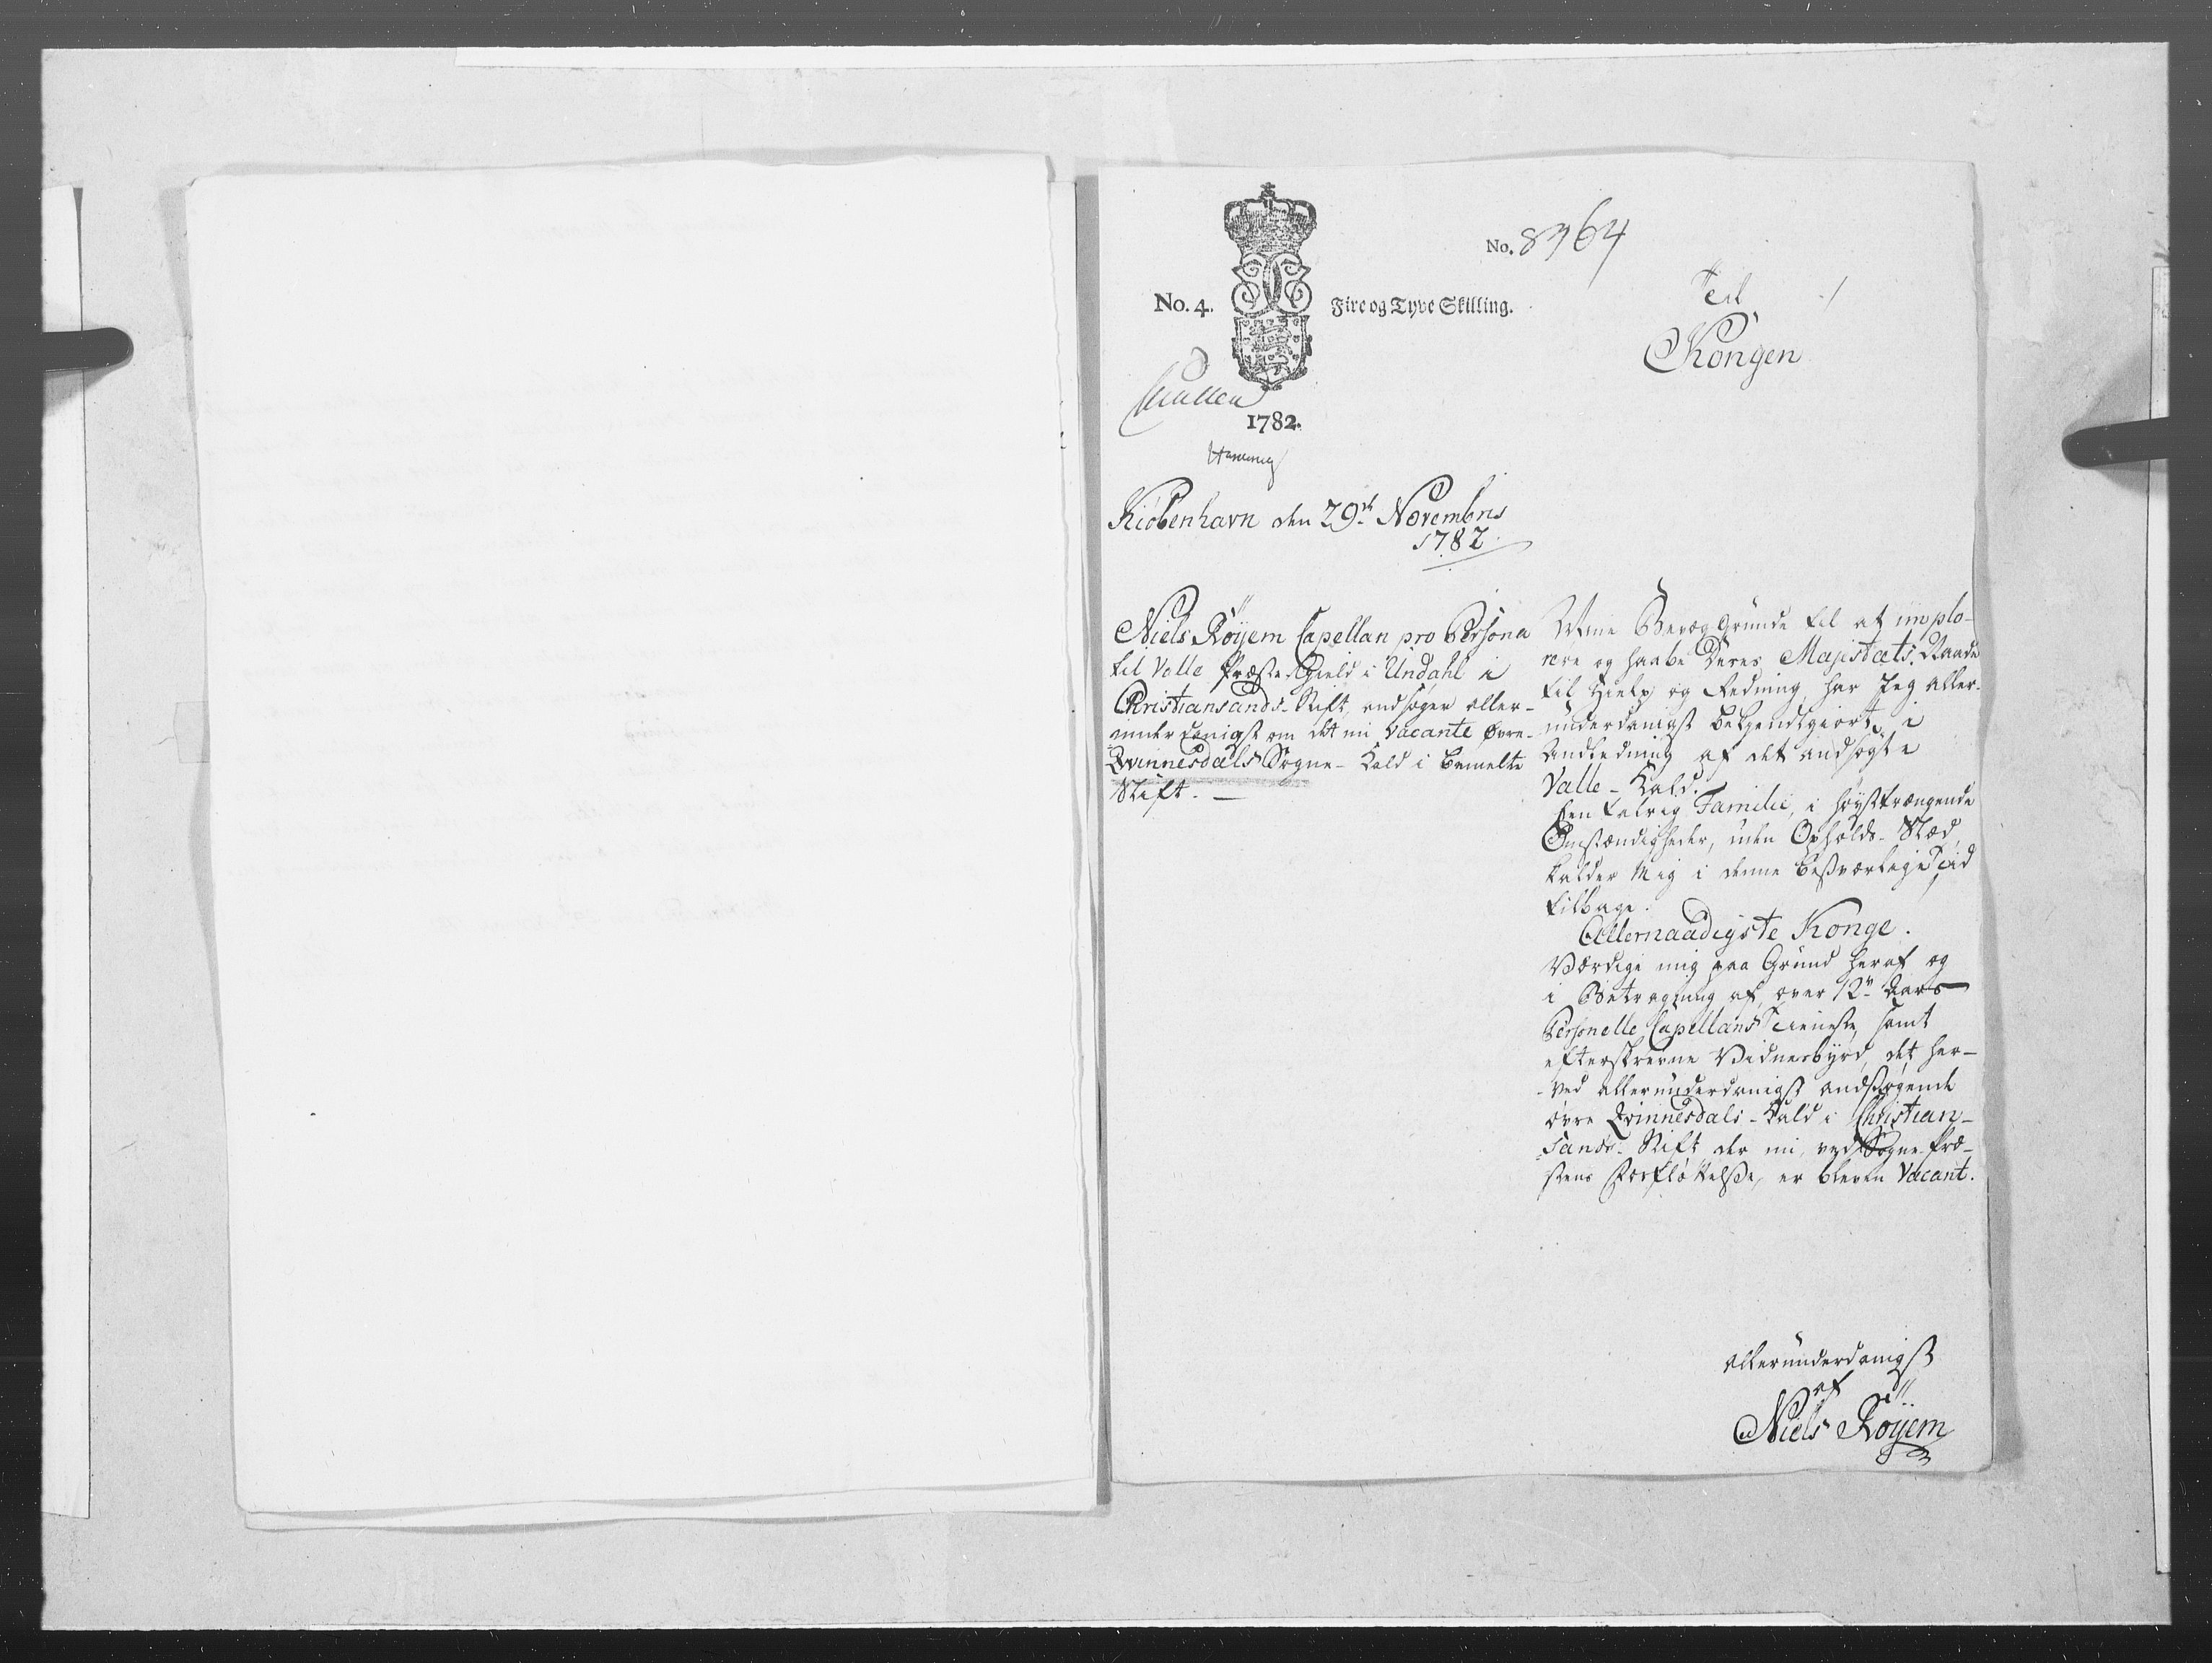 No. 8364
No. 4. Fire og Tyve Skilling.
Til
Kongen
1782.
Kiöbenhavn den 29de Novembris
1782.
Niels Röyem Capellan pro Persona
til Valle Præste-Gield i Undahl i
Christiansands-Stift, andsøger aller-
underdanigst om det nu vacante Øvre-
Qvinnesdals Sogne-Kald i bemelte
Stift.
Mine Bevæg Grunde til at implo-
rere og haabe Deres Majestæts Naade
til Hielp og Redning, har Jeg aller-
underdanigst bekjendtgiort, i
Anledning af det andsøgte
Valle-Kald.
Een talrig Familie, i høysttrængende
Omstændigheder, uden Opholds-Stæd
kalder Mig i denne besværlige Tid
tilbage.
Allernaadigste Konge.
Værdige mig paa Grund heraf og
i Betragtning af, over 12 Aars
Personelle Capellans Tieneste, samt
efterskrevne Vidnesbyrd, det her-
ved allerunderdanigst andsøgende
øvre Qvinnesdals-Kald i Christian-
sands-Stift der nu, ved Sogne-Præ-
stens Forflöttelse, er bleven Vacant.
allerunderdanigst
af
Niels Röyem